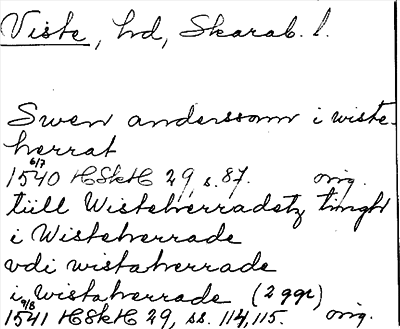 Viste, hd, Skarab. l.
Swen anderssonn i wiste-
herrat
6/7
1540 HSkH 29, s. 87. orig.
tiill Wisteherradetz tinght
i Wisteherrade
vdi wistaherrade
i wistaherrade (2 ggr)
9/8
1541 HSkH 29, ss. 114, 115. orig.